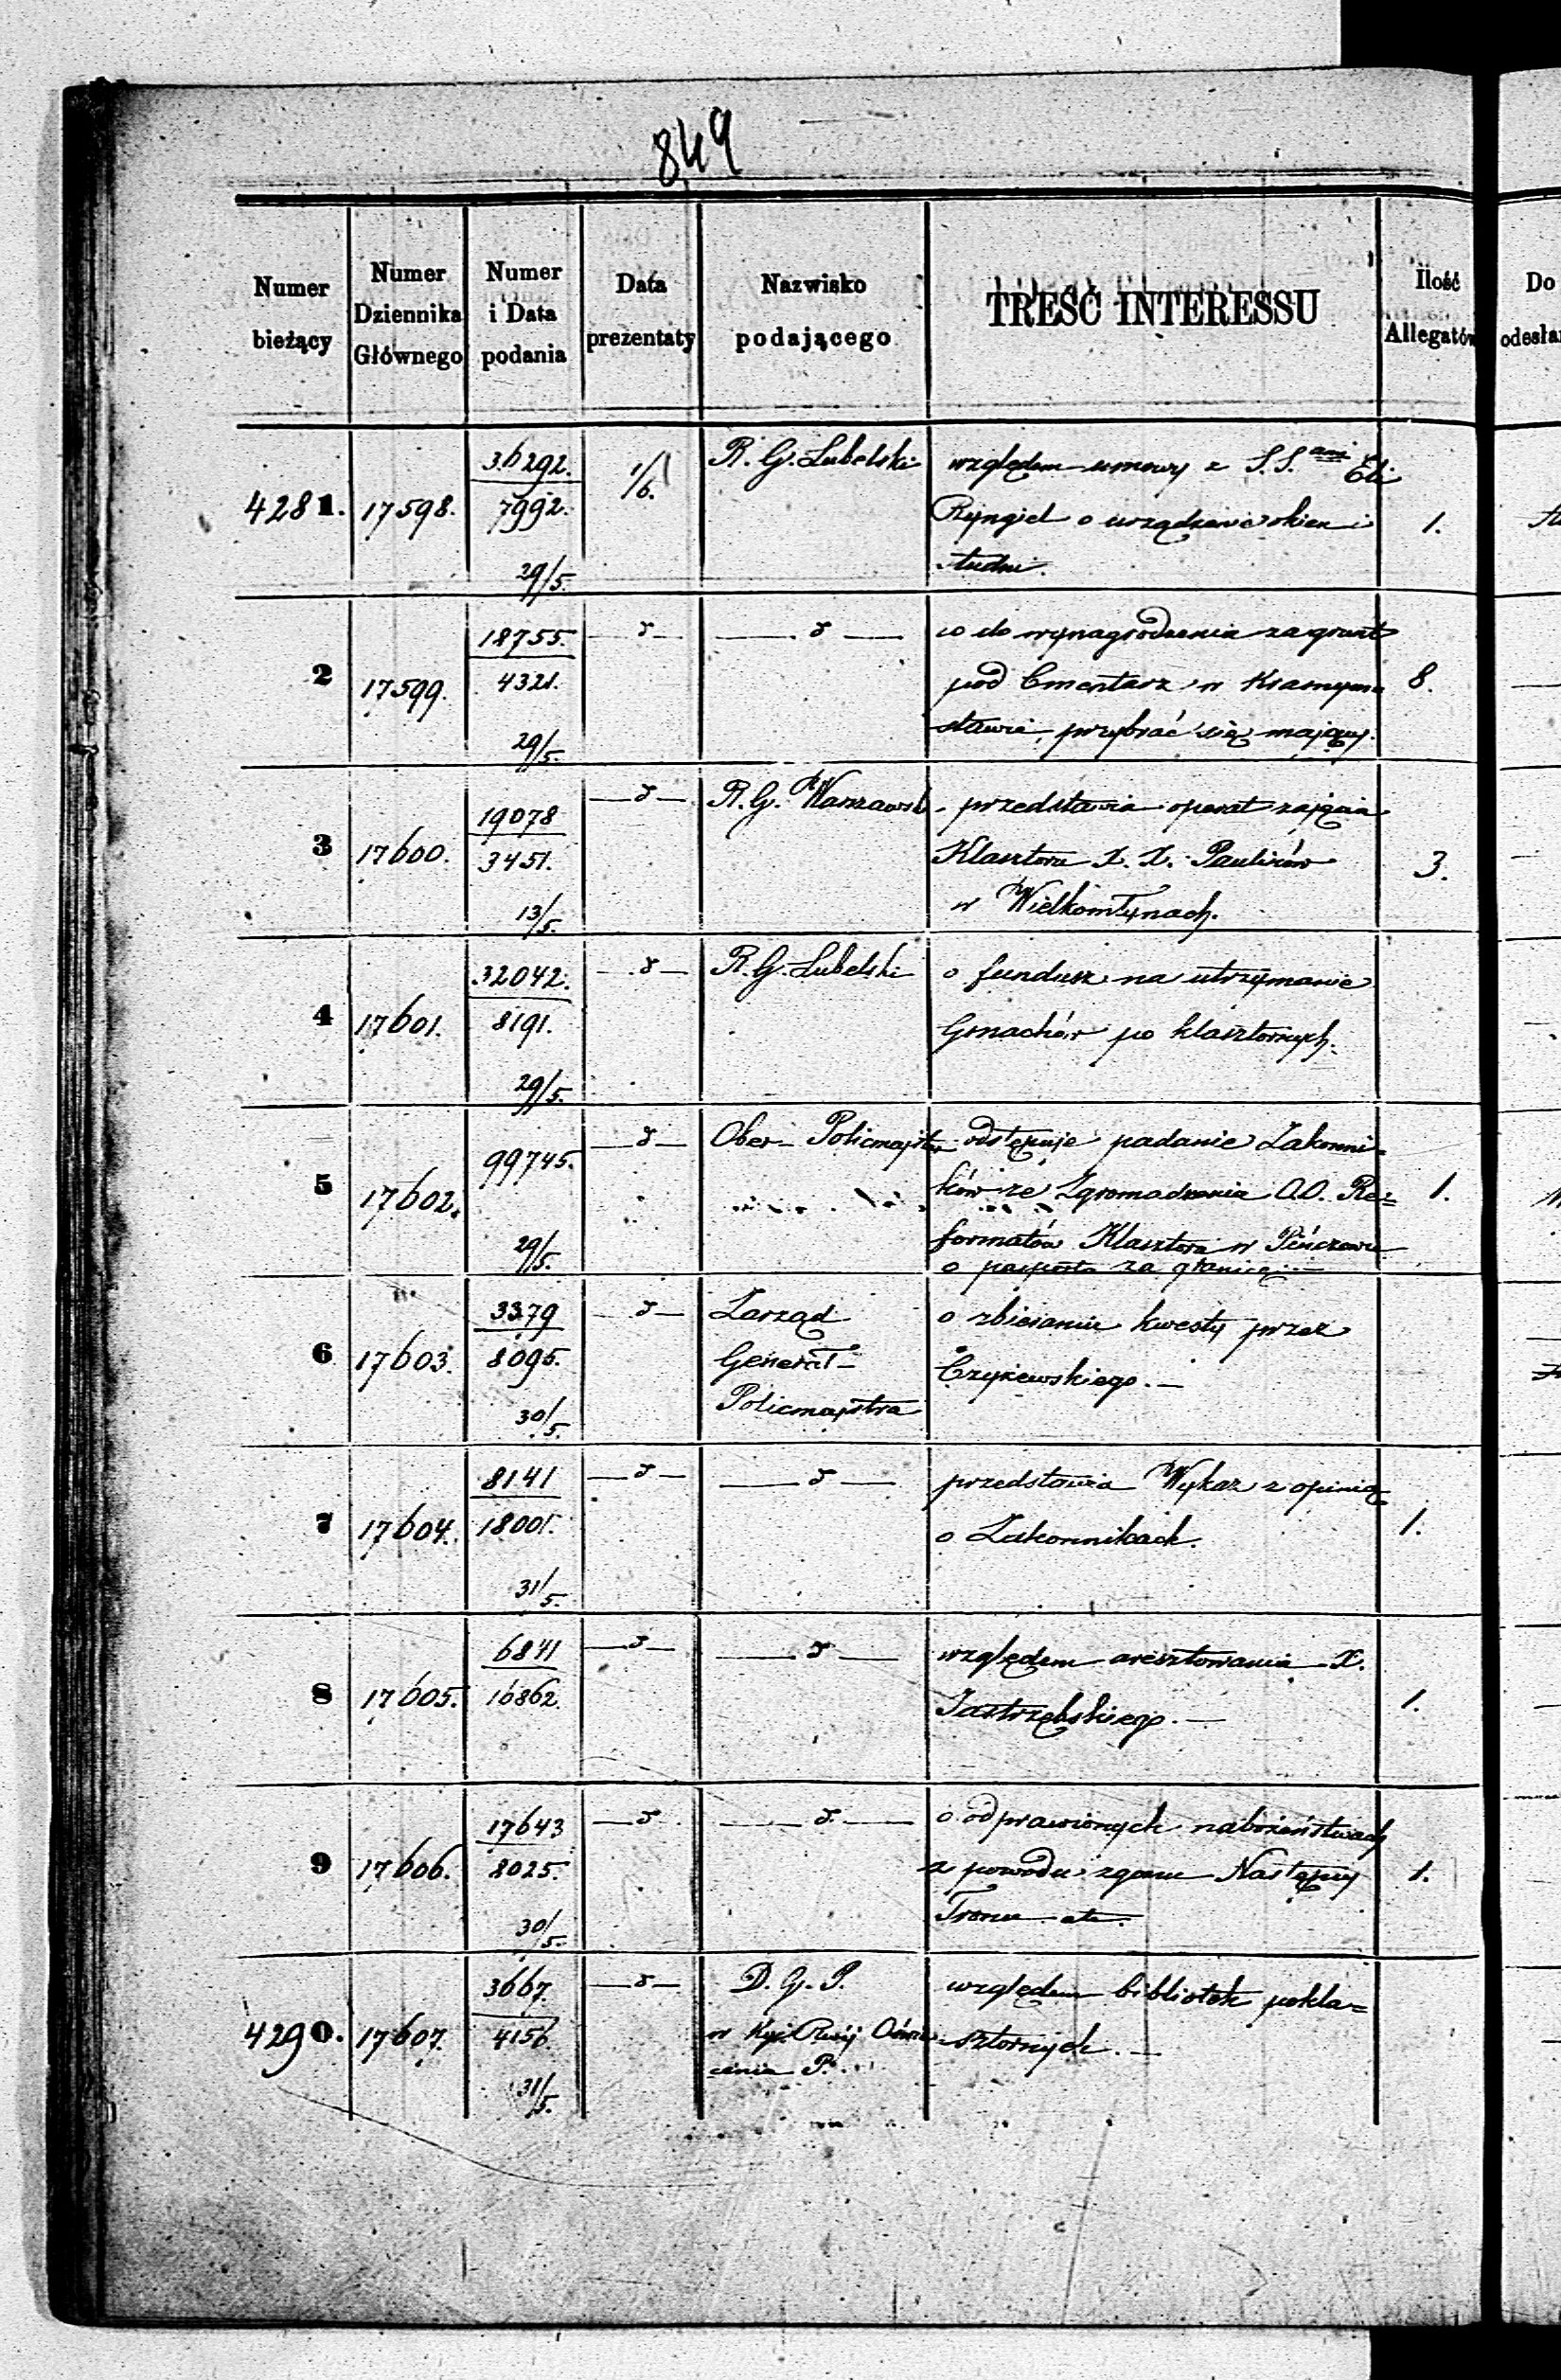 849
Numer bieżący
Numer Dziennika Głównego
Numer i Data podania
Data prezentaty
Nazwisko podającego
TREŚĆ INTERESSU
Ilość Allegatów
Do
odesła
4281. 17598. 36292. 7992. 29/5. 1/6. R. G. Lubelski
względem umowy z S.S.ami Eli
Ryngiel o urządzenie okien i
studni. 1.
2 17599. 18755. 4321. 29/5. — d — — d —
co do wynagrodzenia za grunt
pod Cmentarz w Krasnym
stawie, przybrać się mający. 8.
3 17600. 19078 3451. 13/5. — d — R. G. Warszawski
przedstawia operat zajęcia
Klasztoru X. X. Paulinów
w Wielkomłynach. 3.
4 17601. 32042. 8191. 29/5. — d — R. G. Lubelski
o fundusz na utrzymanie
Gmachów po klasztornych.
5 17602. 99745. 29/5. — d — Ober-Policmajster
odstępuje podanie Zakonni-
ków ze Zgromadzenia O.O. Re-
formatów Klasztoru w Pińczowie
o paszporta za granicę. — 1.
6 17603. 3379 8095. 30/5. — d — Zarząd
Generał-
Policmajstra
o zbieraniu kwesty przez
Czyżewskiego. —
7 17604. 8141 18001. 31/5. — d — — d —
przedstawia Wykaz z opinią
o Zakonnikach. 1.
8 17605. 6841 16862. — d — — d —
względem aresztowania X.
Jastrzębskiego. — 1.
9 17606. 17643 8025. 30/5. — d — — d —
o odprawionych nabożeństwach
z powodu zgonu Następcy
Tronu etc. 1.
4290. 17607. 3667. 4156. 31/5. — d — D. G. P.
w Kr. Oświe-
cenia P.
względem bibliotek pokla-
sztornych. —